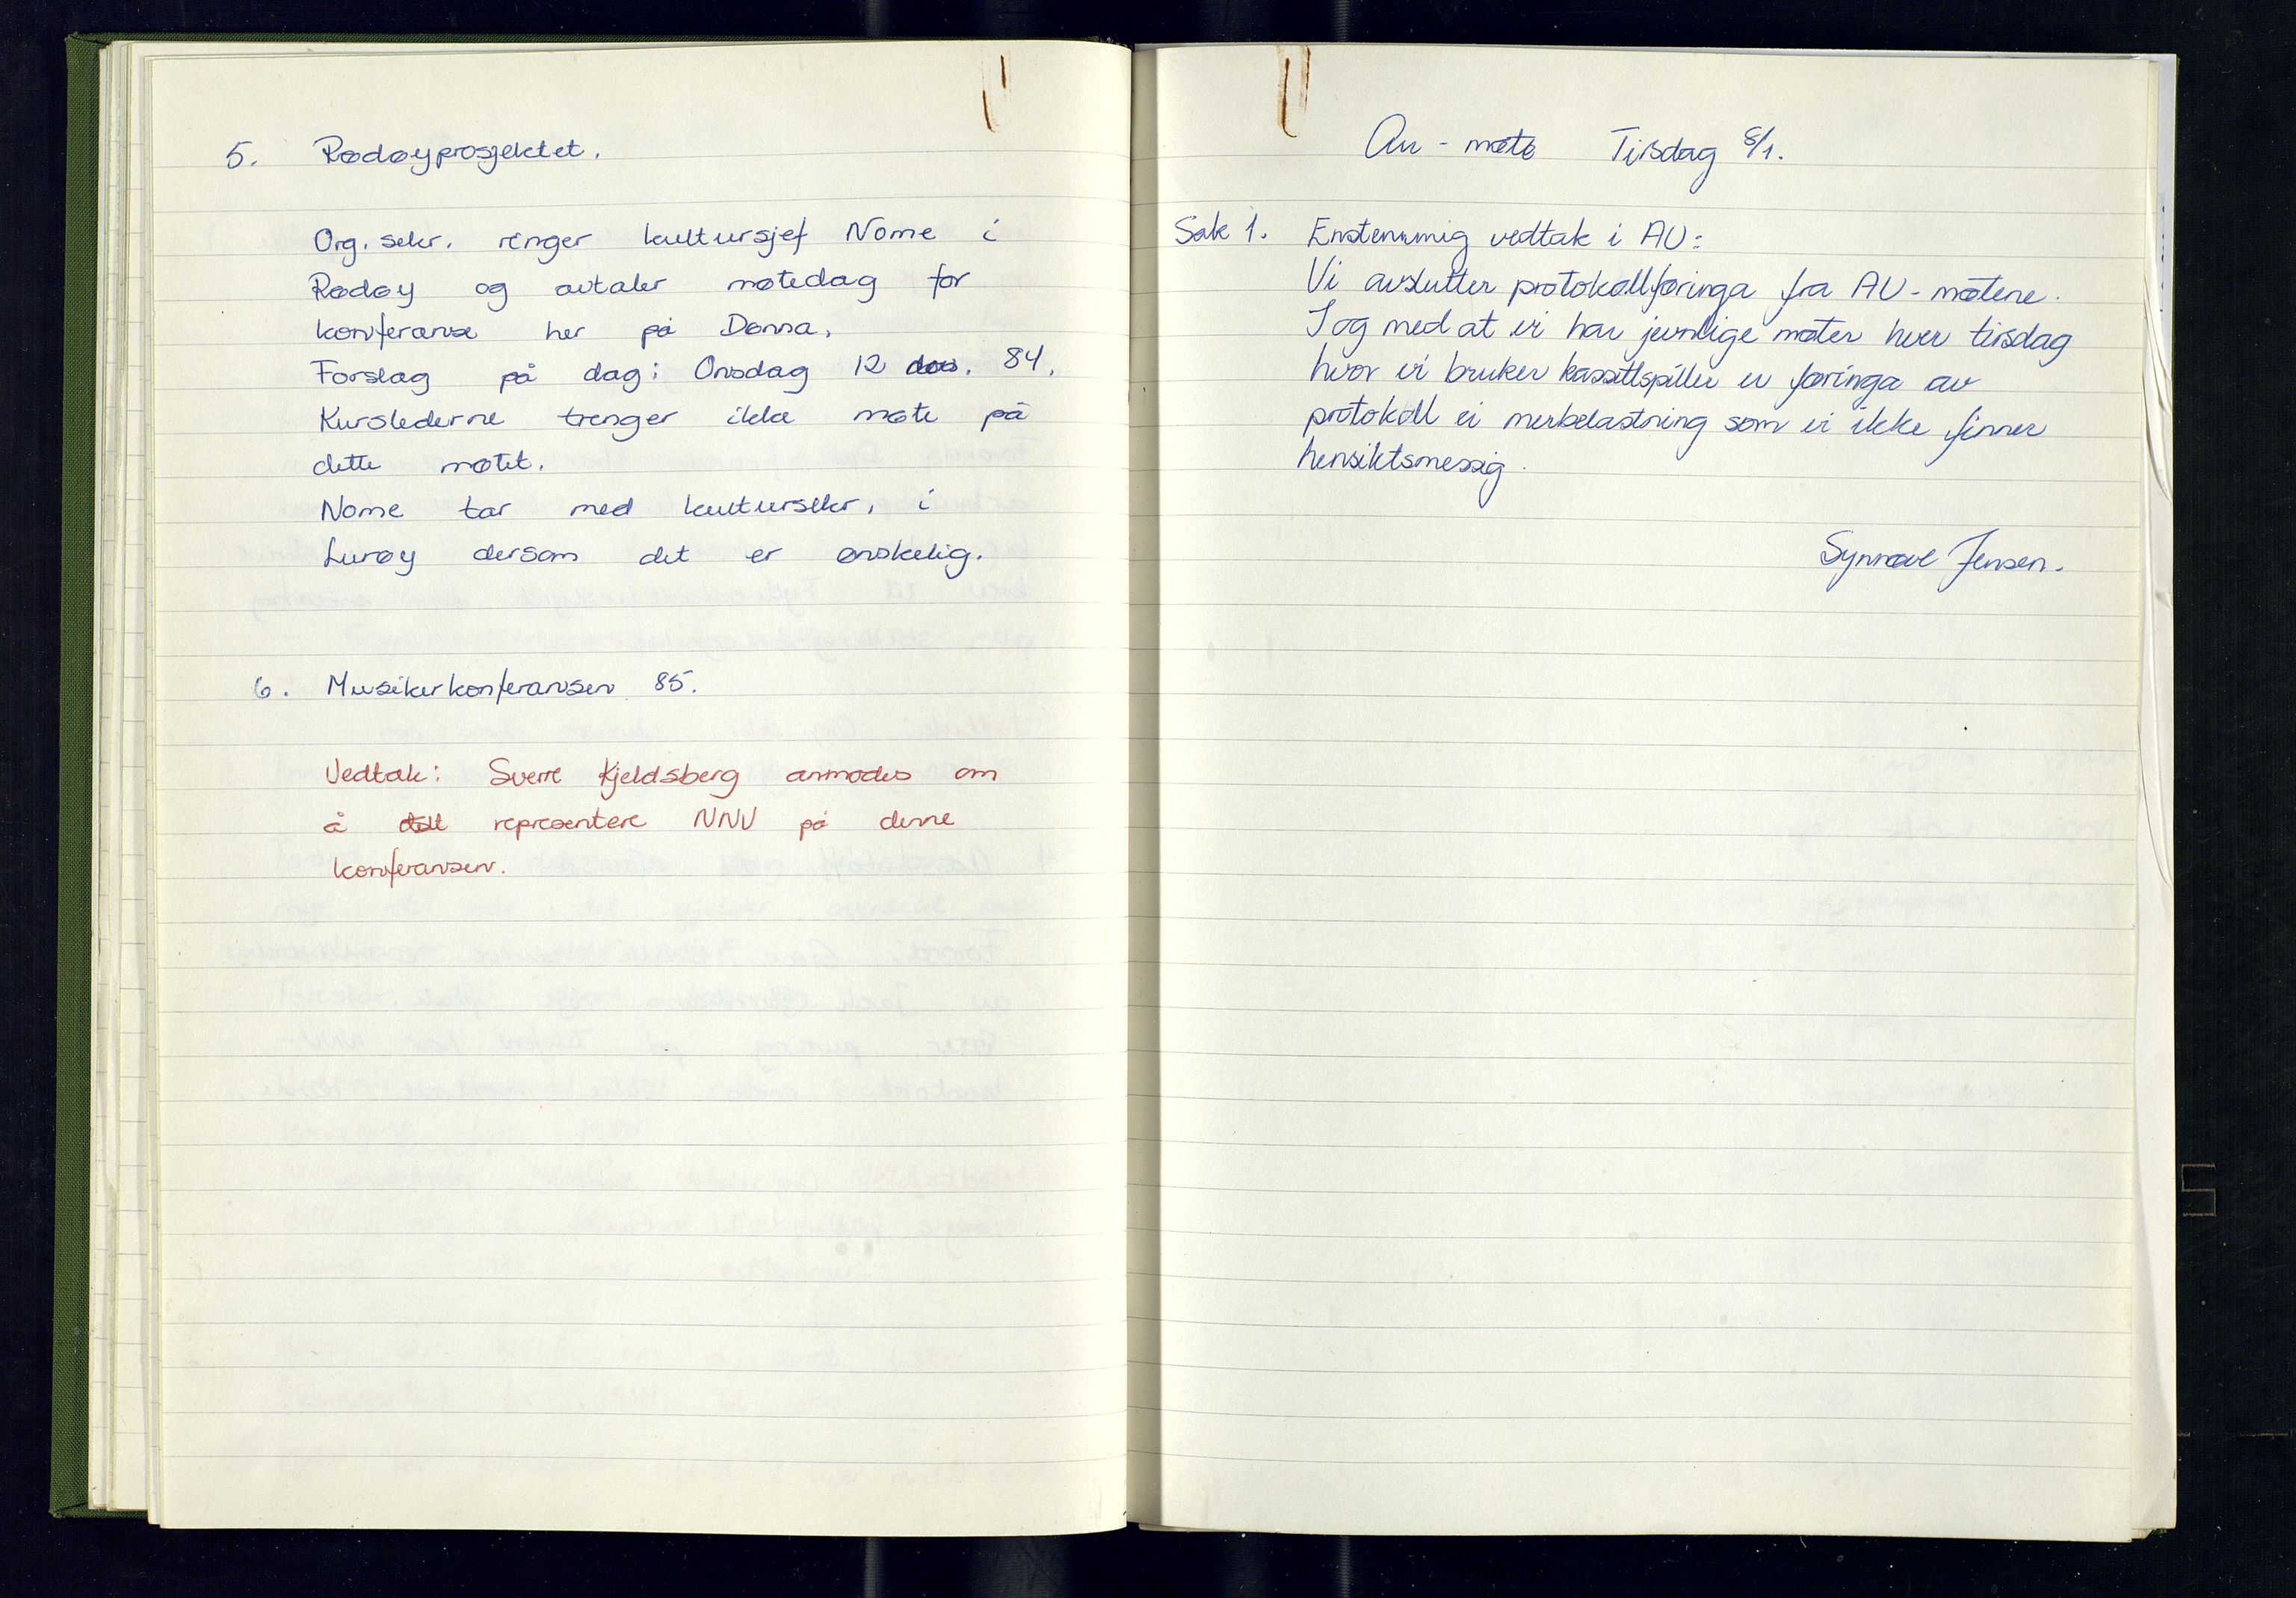 5. Rødøyprosjektet.
Org. sekr. ringer kultursjef Nome i
Rødøy og avtaler møtedag for
konferanse her på Dønna.
Forslag på dag: Onsdag 12 des. 84.
Kurslederne trenger ikke møte på
dette møtet.
Nome tar med kultursekr. i
Lurøy dersom det er ønskelig.
6. Musikerkonferansen 85.
Vedtak: Sverre Kjeldsberg anmodes om
å representere NNV på denne
konferansen.
Au - møte Tirsdag 8/1.
Sak 1. Enstemmig vedtak i AU:
Vi avslutter protokollføringa fra AU-møtene.
I og med at vi har jevnlige møter hver tirsdag
hvor vi bruker kassettspiller er føringa av
protokoll ei merbelastning som vi ikke finner
hensiktsmessig.
Synnøve Jensen.